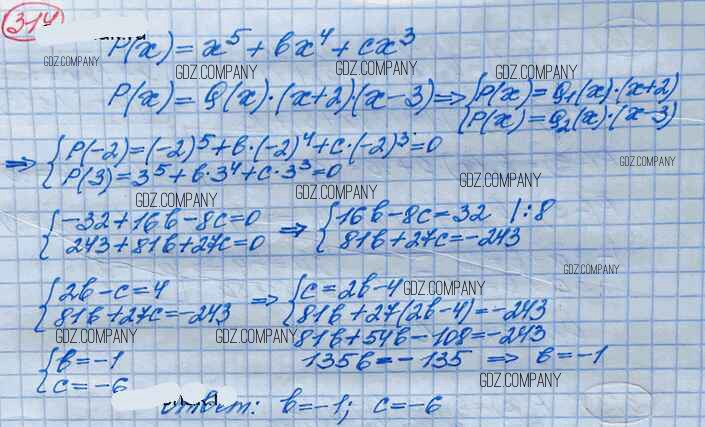 314
P(x) = x⁵ + bx⁴ + cx³
GDZ.COMPANY GDZ.COMPANY GDZ.COMPANY GDZ.COMPANY
P(x) = Q(x)·(x+2)(x-3) => { P(x) = Q₁(x)·(x+2)
P(x) = Q₂(x)·(x-3)
=> { P(-2) = (-2)⁵ + b·(-2)⁴ + c·(-2)³ = 0
P(3) = 3⁵ + b·3⁴ + c·3³ = 0
GDZ.COMPANY GDZ.COMPANY GDZ.COMPANY
{ -32 + 16b - 8c = 0 => { 16b - 8c = 32 |:8
243 + 81b + 27c = 0 81b + 27c = -243
GDZ.COMPANY
{ 2b - c = 4 => { c = 2b - 4 GDZ.COMPANY
81b + 27c = -243 81b + 27(2b - 4) = -243
GDZ.COMPANY GDZ.COMPANY GDZ.COMPANY
81b + 54b - 108 = -243
{ b = -1 135b = -135 => b = -1
c = -6
GDZ.COMPANY
ответ: b = -1; c = -6